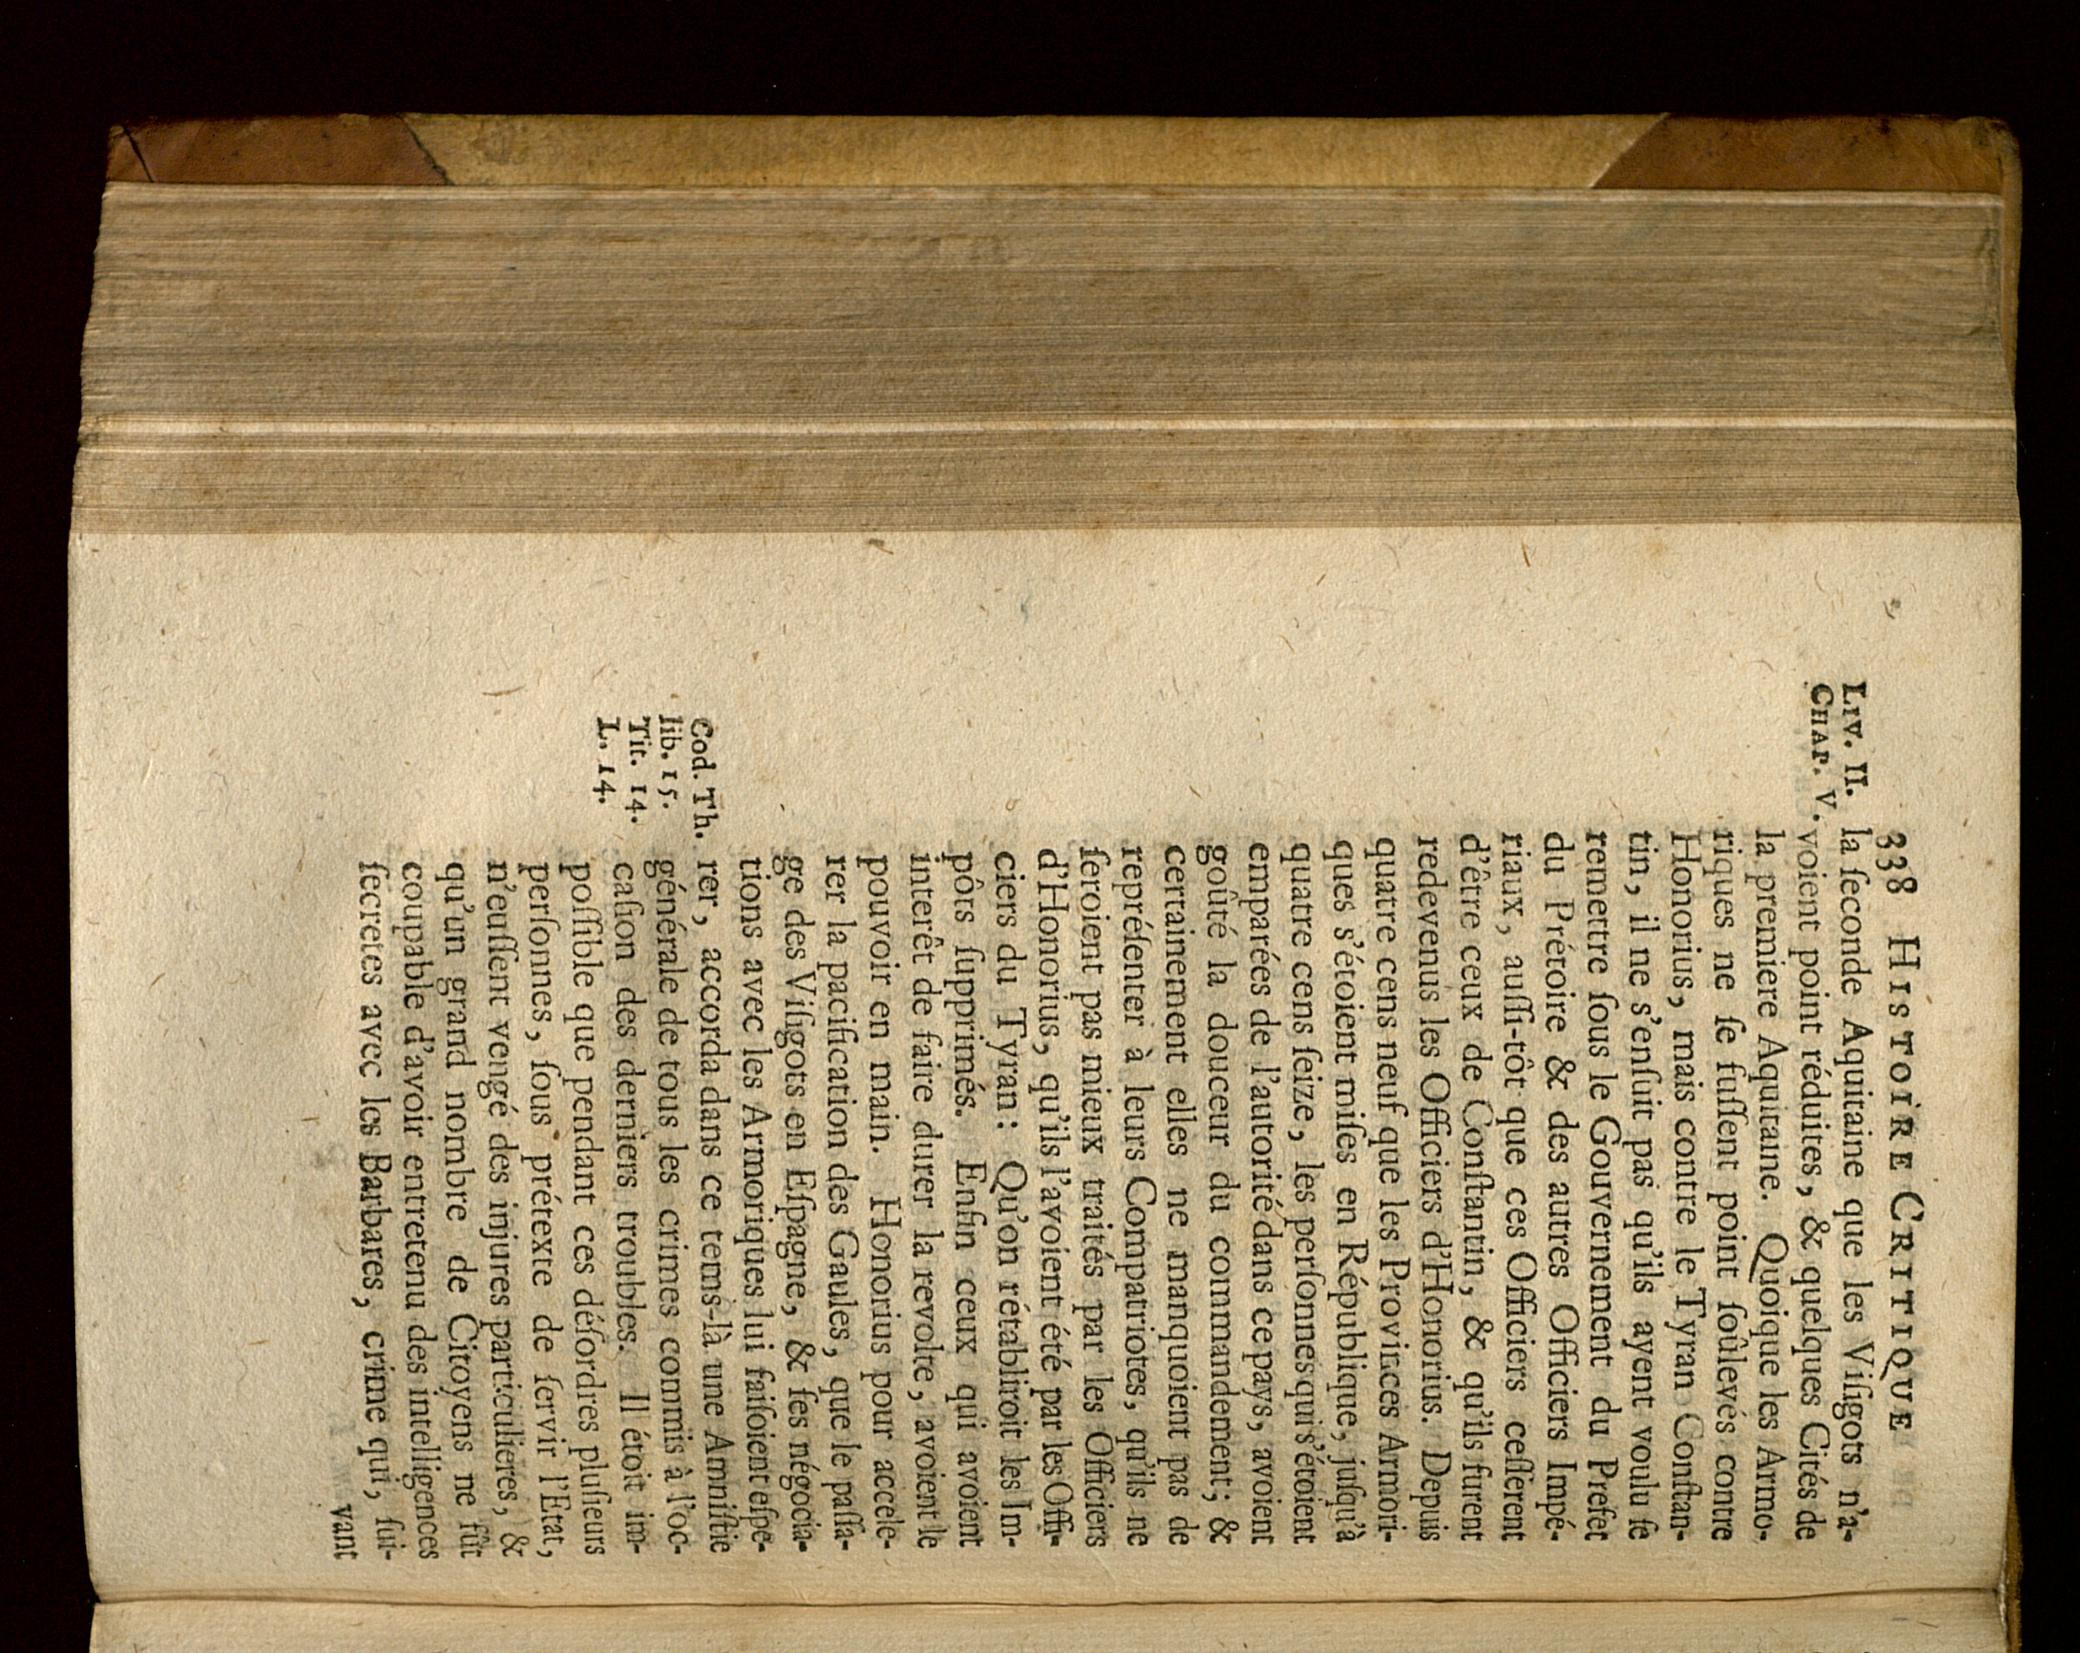 338 HISTOIRE CRITIQUE
LIV. II.
CHAP. V.
la ſeconde Aquitaine que les Viſigots n'a-
voient point réduites, & quelques Cités de
la premiere Aquitaine. Quoique les Armo-
riques ne ſe fuſſent point ſoûlevés contre
Honorius, mais contre le Tyran Conſtan-
tin, il ne s'enſuit pas qu'ils ayent voulu ſe
remettre ſous le Gouvernement du Prefet
du Prétoire & des autres Officiers Impé-
riaux, auſſi-tôt que ces Officiers ceſſerent
d'être ceux de Conſtantin, & qu'ils furent
redevenus les Officiers d'Honorius. Depuis
quatre cens neuf que les Provinces Armori-
ques s'étoient miſes en République, juſqu'à
quatre cens ſeize, les perſonnes qui s'étoient
emparées de l'autorité dans ce pays, avoient
goûté la douceur du commandement; &
certainement elles ne manquoient pas de
repréſenter à leurs Compatriotes, qu'ils ne
ſeroient pas mieux traités par les Officiers
d'Honorius, qu'ils l'avoient été par les Offi-
ciers du Tyran: Qu'on rétabliroit les Im-
pôts ſupprimés. Enfin ceux qui avoient
interêt de faire durer la revolte, avoient le
pouvoir en main. Honorius pour accele-
rer la pacification des Gaules, que le paſſa-
ge des Viſigots en Eſpagne, & ſes négocia-
tions avec les Armoriques lui faiſoient eſpe-
rer, accorda dans ce tems-là une Amniſtie
générale de tous les crimes commis à l'oc-
caſion des derniers troubles. Il étoit im-
poſſible que pendant ces déſordres pluſieurs
perſonnes, ſous prétexte de ſervir l'Etat,
n'euſſent vengé des injures particulieres, &
qu'un grand nombre de Citoyens ne fût
coupable d'avoir entretenu des intelligences
ſecretes avec les Barbares, crime qui, ſui-
vant
Cod. Th.
lib. 15.
Tit. 14.
L. 14.